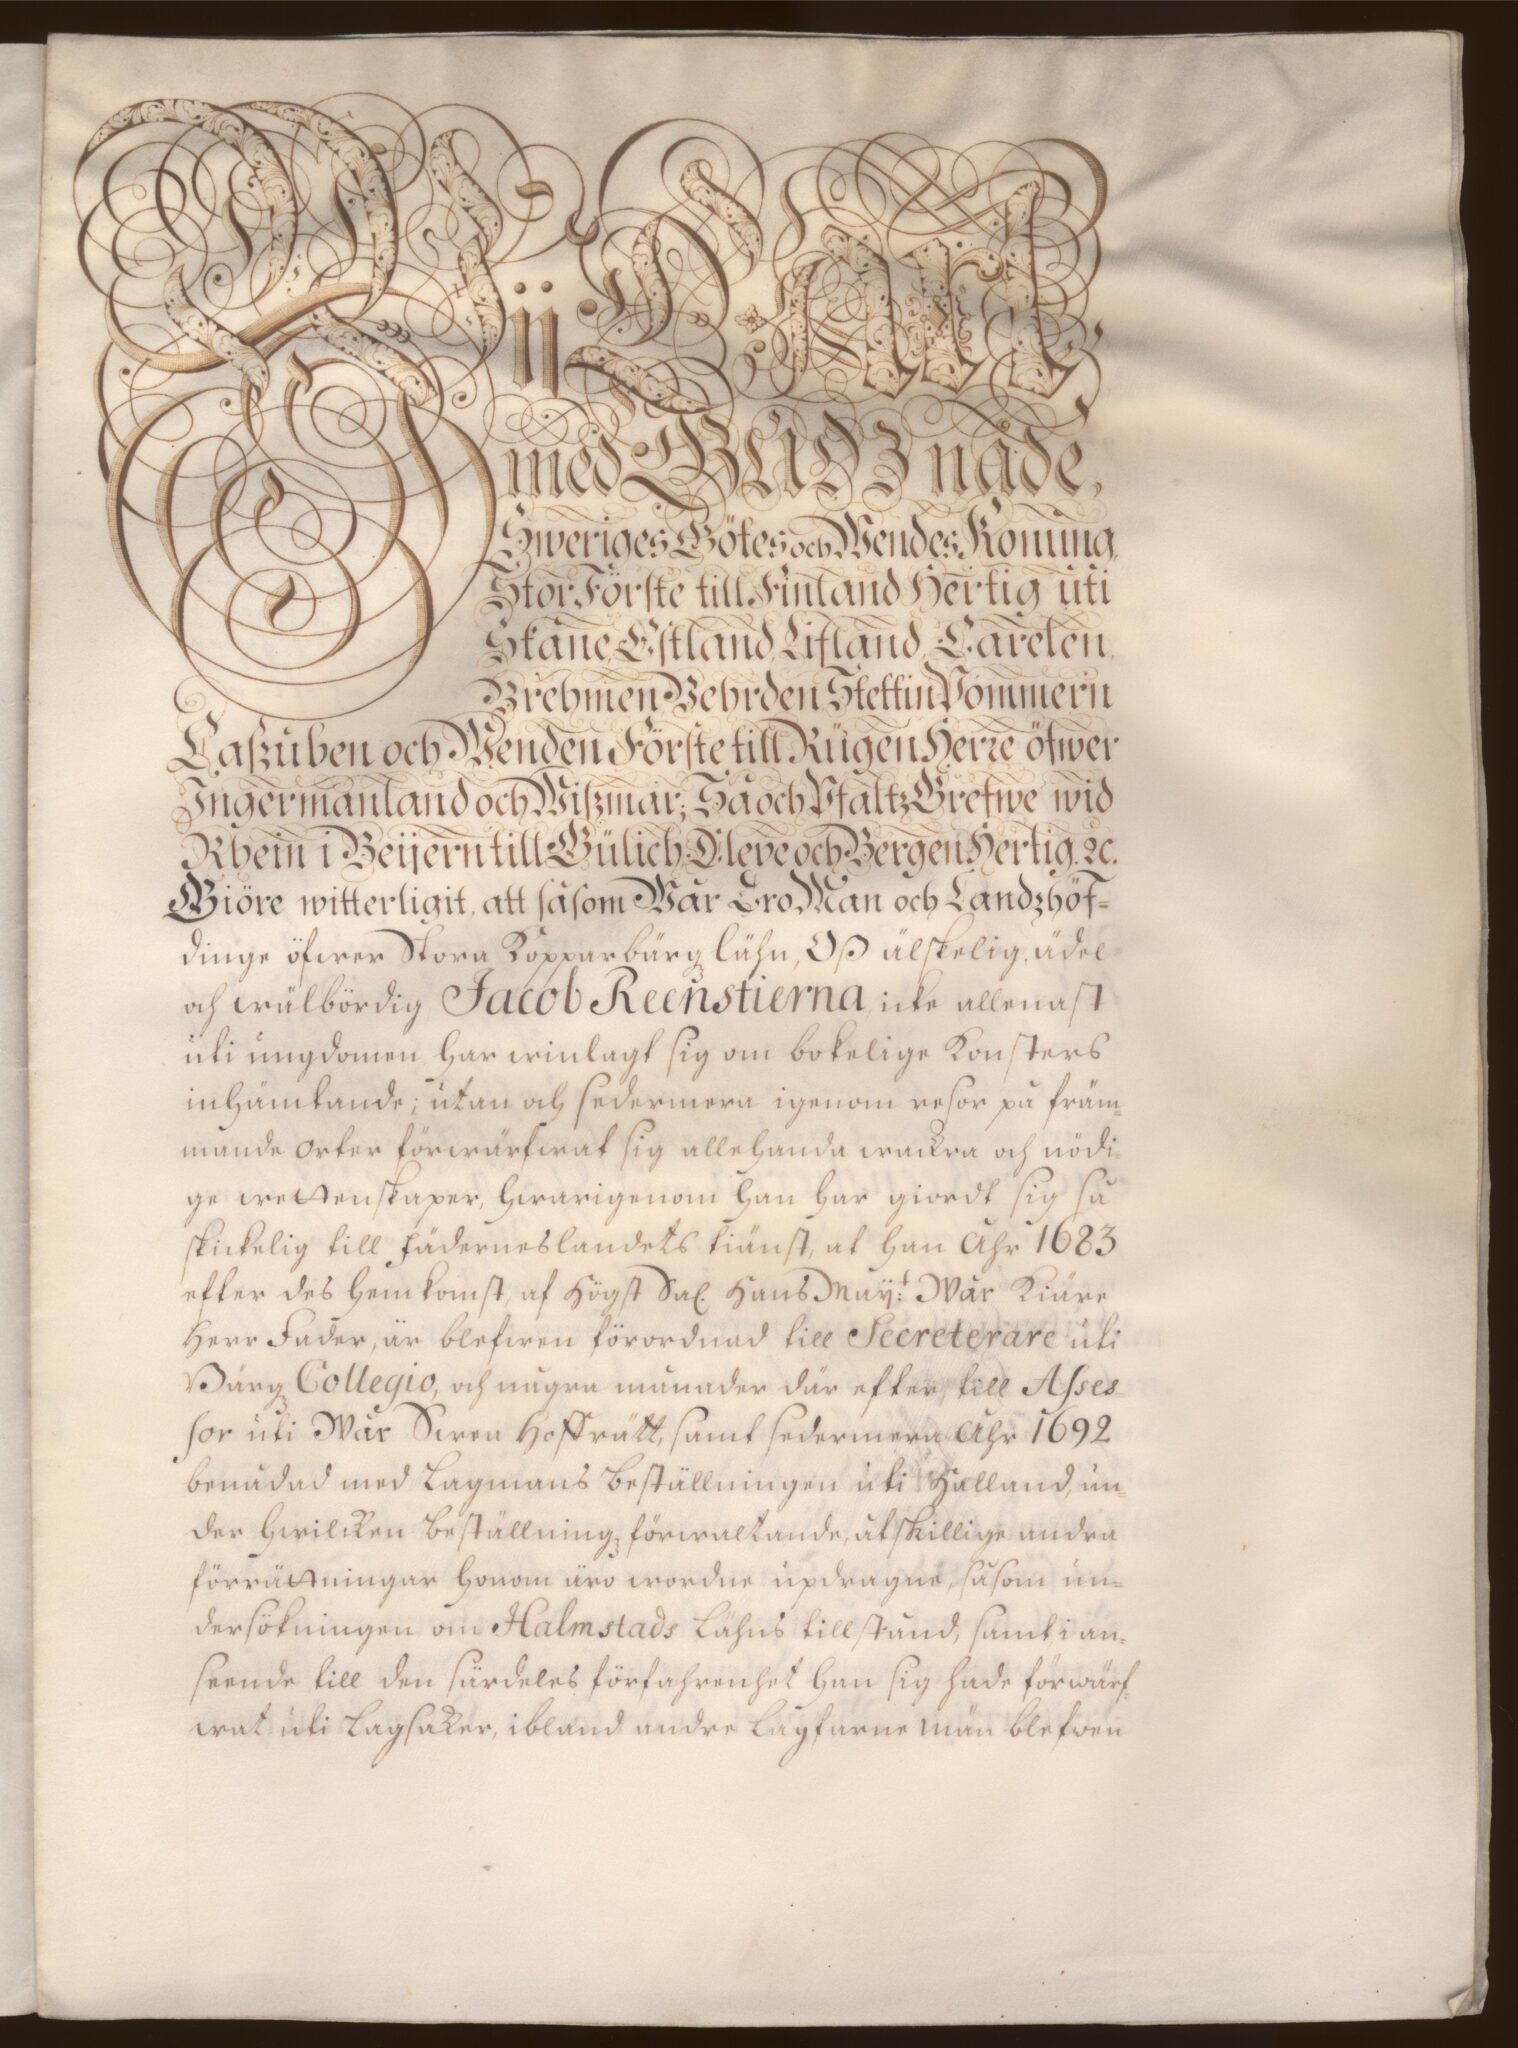 Wii Carl
med GUDZ nåde,
Sweriges Götes och Wendes Konung,
Stor Förste till Finland Hertig uti
Skåne, Estland, Lifland, Carelen,
Brehmen Vehrden Stettin Pommern
Caszuben och Wenden Förste till Rügen Herre öfwer
Ingermanland och Wiszmar; Så och Pfaltz Grefwe wid
Rhein i Beijern till Gülich, Cleve och Bergen Hertig. &c.
Giöre witterligit, att såsom Wår Tro Man och Landzhöf-
dinge öfwer Stora Kopparbärgz lähn, Oß älskelig, ädel
och wälbördig Jacob Reenstierna, icke allenast
uti ungdomen har winlagt sig om bokelige Konsters
inhämtande; utan och sedermera igenom resor på främ-
mande orter förwärfwat sig allehanda wackra och nödi-
ge wettenskaper, hwarigenom han har giordt sig så
skickelig till fäderneslandets tiänst, at han Åhr 1683
efter des hemkomst, af Högst Sal. Hans Mayt: Wår Kiäre
Herr Fader, är blefwen förordnad till Secreterare uti
Bärgz Collegio, och några månader där efter, till Asses-
sor uti Wår Swea Hoffrätt, samt sedermera Åhr 1692
benådad med Lagmans Beställningen uti Halland, un-
der hwilcken Beställningz förwaltande, åtskillige andra
förrättningar honom äro wordne updragne, såsom un-
dersökningen om Halmstads Lähns tillstånd, samt i an-
seende till den särdeles förfahrenhet han sig hade förwärf-
wat uti Lagsaker, ibland andre Lagfarne män blefwen